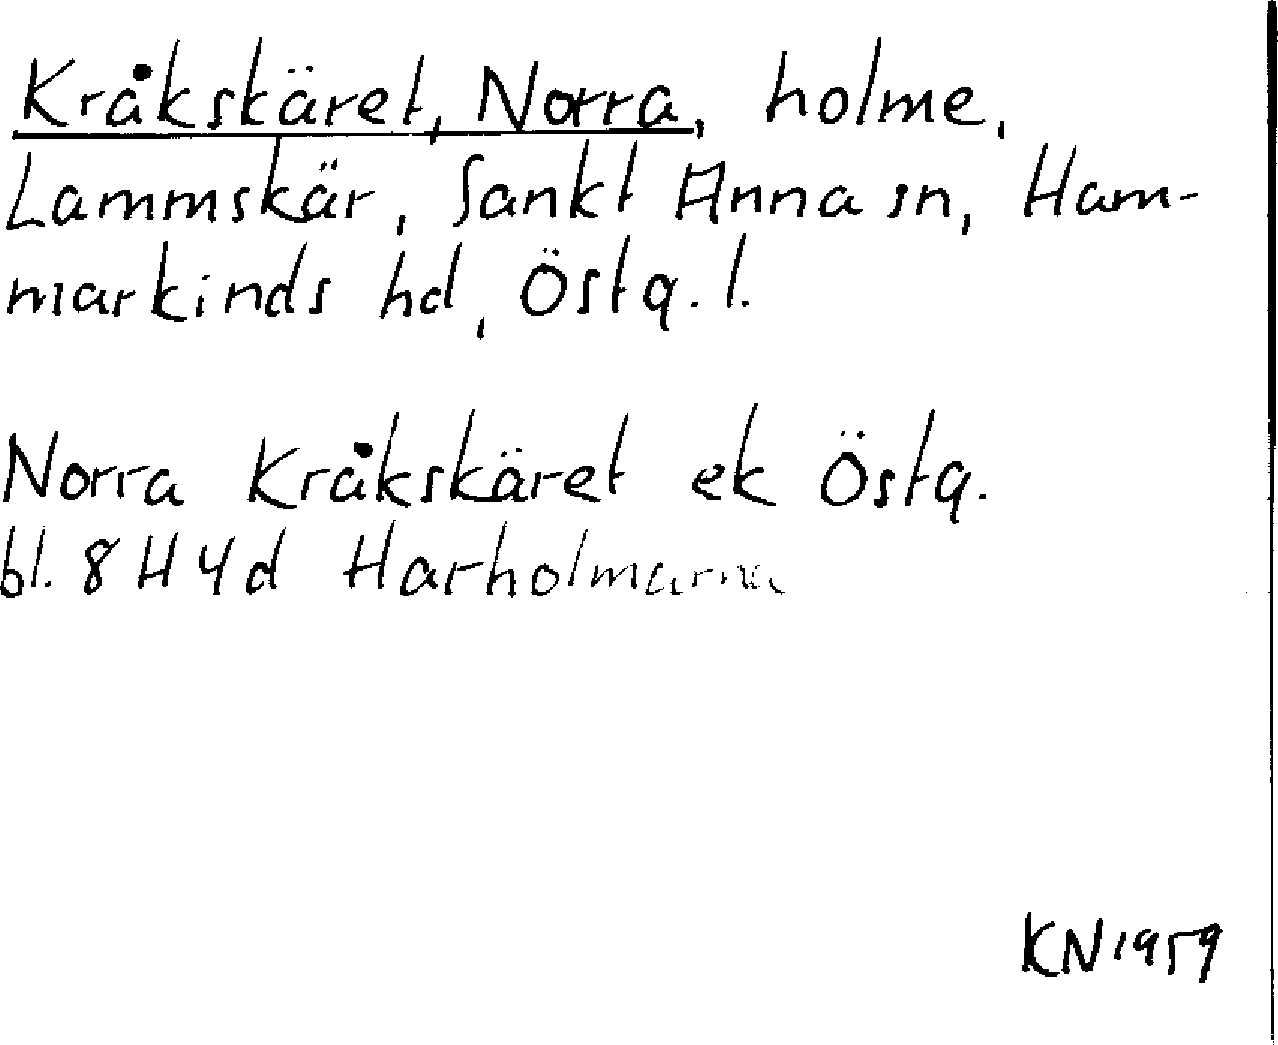 Kråkskäret, Norra, holme,
Lammskär, Sankt Anna sn, Ham-
markinds hd, Östg. l.
Norra Kråkskäret ek Östg.
bl. 8 H 4 d Harholmarna
KN 1959